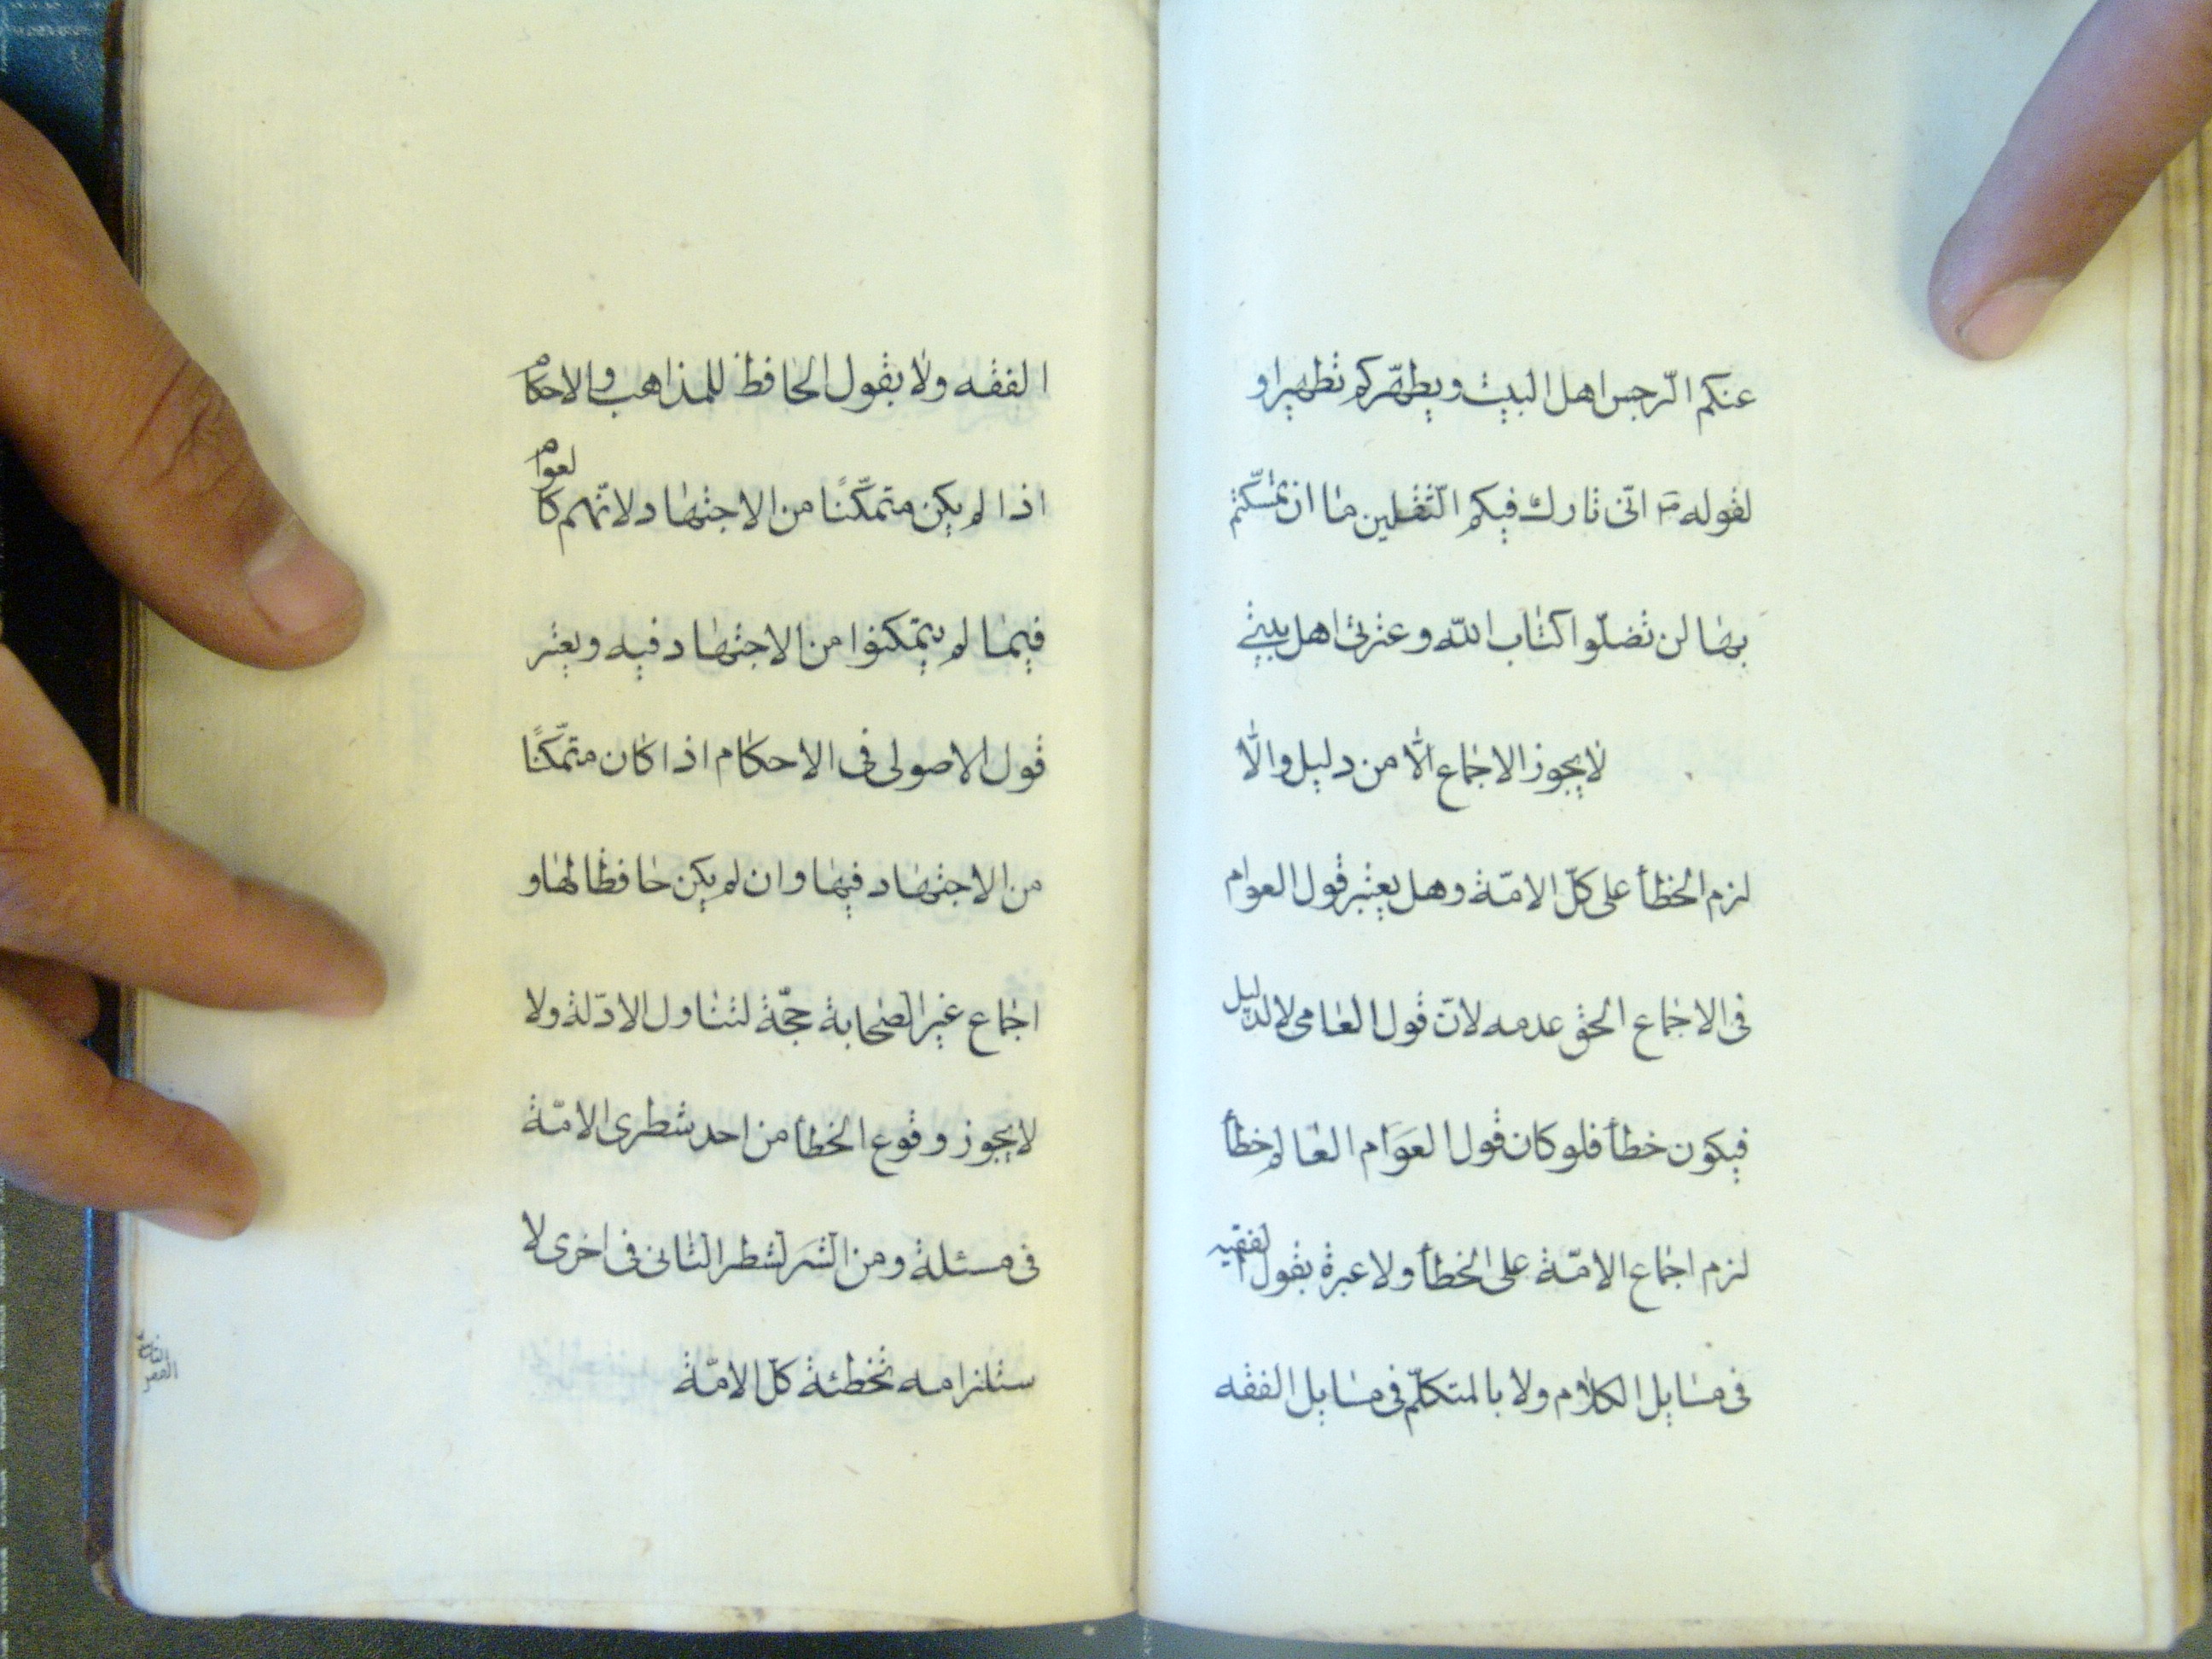 عنكم الرّجس اهل البيت ويطهّركم تطهيرا و
لقوله ص انّى تارك فيكم الثّقلين ما ان تمسّكتم
بها لن تضلّوا كتاب اللّه وعترتى اهل بيتى
لا يجوز الاجماع الّا من دليل والّا
لزم الخطأ على كلّ الامّة وهل يعتبر قول العوام
فى الاجماع الحق عدمه لانّ قول العامى لا لدليل
فيكون خطأ فلو كان قول العَوَام العالم خطأ
لزم اجماع الامّة على الخطأ ولا عبرة بقول الفقيه
فى مسايل الكلام ولا بالمتكلّم فى مسايل الفقه
الفقه ولا بقول الحافظ للمذاهب والاحكام
اذا لم يكن متمكّنًا من الاجتهاد لانّهم كالعوام
فيما لم يتمكنوا من الاجتهاد فيه ويعتبر
قول الاصولى فى الاحكام اذا كان متمكّنًا
من الاجتهاد فيها وان لم يكن حافظا لها و
اجماع غير الصحابة حجّة لتناول الادّلة ولا
لا يجوز وقوع الخطأ من احد شطرى الامّة
فى مسئلة ومن الشر لشطر الثانى فى اخرى لا
ستلزامه تخطئة كلّ الامّة